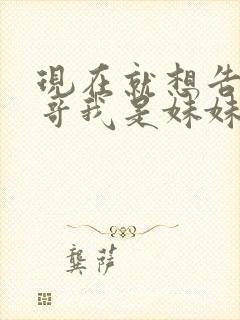 現在就想告
哥我是妹妹
龔萨